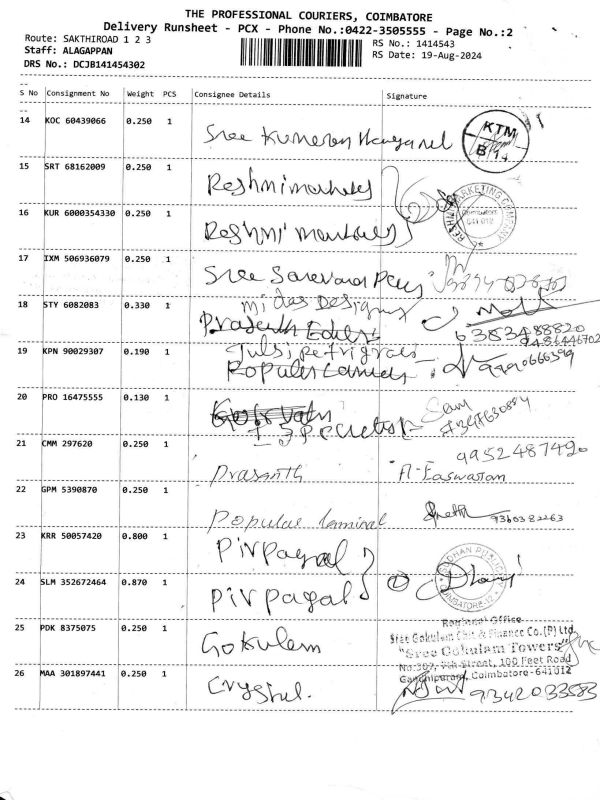 THE PROFESSIONAL COURIERS, COIMBATORE
Delivery Runsheet - PCX - Phone No.:0422-3505555 - Page No.:2
Route: SAKTHIROAD 1 2 3
Staff: ALAGAPPAN
DRS No.: DCJB141454302
RS No.: 1414543
RS Date: 19-Aug-2024
S No Consignment No Weight PCS Consignee Details Signature
14 KOC 60439066 0.250 1
Sree Kumeran
KTM
B 14
15 SRT 68162009 0.250 1
Reshmi
16 KUR 6000354330 0.250 1
Reshmi
RESHMI MARKETING COMPANY
Coimbatore
641 012
17 IXM 506936079 0.250 1
Sree
18 STY 6082083 0.330 1
midas Designs
6383488820
19 KPN 90029307 0.190 1
20 PRO 16475555 0.130 1
21 CMM 297620 0.250 1
Prasanth
9952487490
A. Easwaran
22 GPM 5390870 0.250 1
Popular
9360382263
23 KRR 50057420 0.800 1
Pirpagal
24 SLM 352672464 0.870 1
Pirpagal
25 PDK 8375075 0.250 1
Gokulam
Regional Office
Sree Gokulam Chit & Finance Co.(P) Ltd.
"Sree Gokulam Towers"
No.307, 7th Street, 100 Feet Road
Gandhipuram, Coimbatore-641012
26 MAA 301897441 0.250 1
Crystal.
9342033583